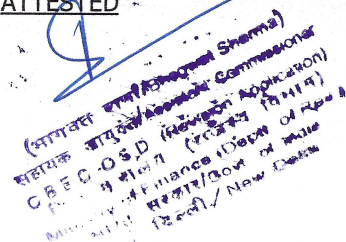 ATTESTED
(भागवत शर्मा/Bhagwat Sharma)
सहायक आयुक्त/Assistant Commissioner
C B E C - O S D (Revision Application)
Ministry of Finance (Deptt of Rev
सरकार/Govt of India
दिल्ली / New Delhi